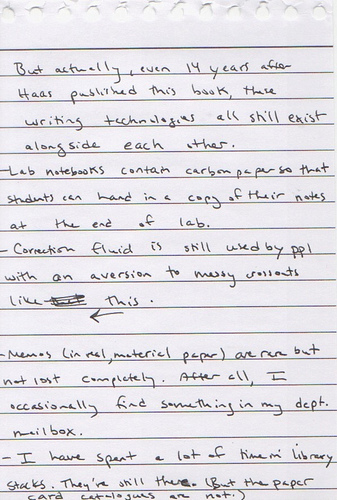 But actually, even 14 years after
Haas published this book, these
writing technologies all still exist
alongside each other.
-Lab notebooks contain carbon paper so that
students can hand in a copy of their notes
at the end of lab.
- Correction fluid is still used by ppl
with an aversion to messy crossouts
like this.
- Memos (in real, material paper) are rare but
not lost completely. After all, I
occasionally find something in my dept.
mailbox.
- I have spent a lot of time in library
stacks. They're still there. (But the paper
card catalogues are not.)